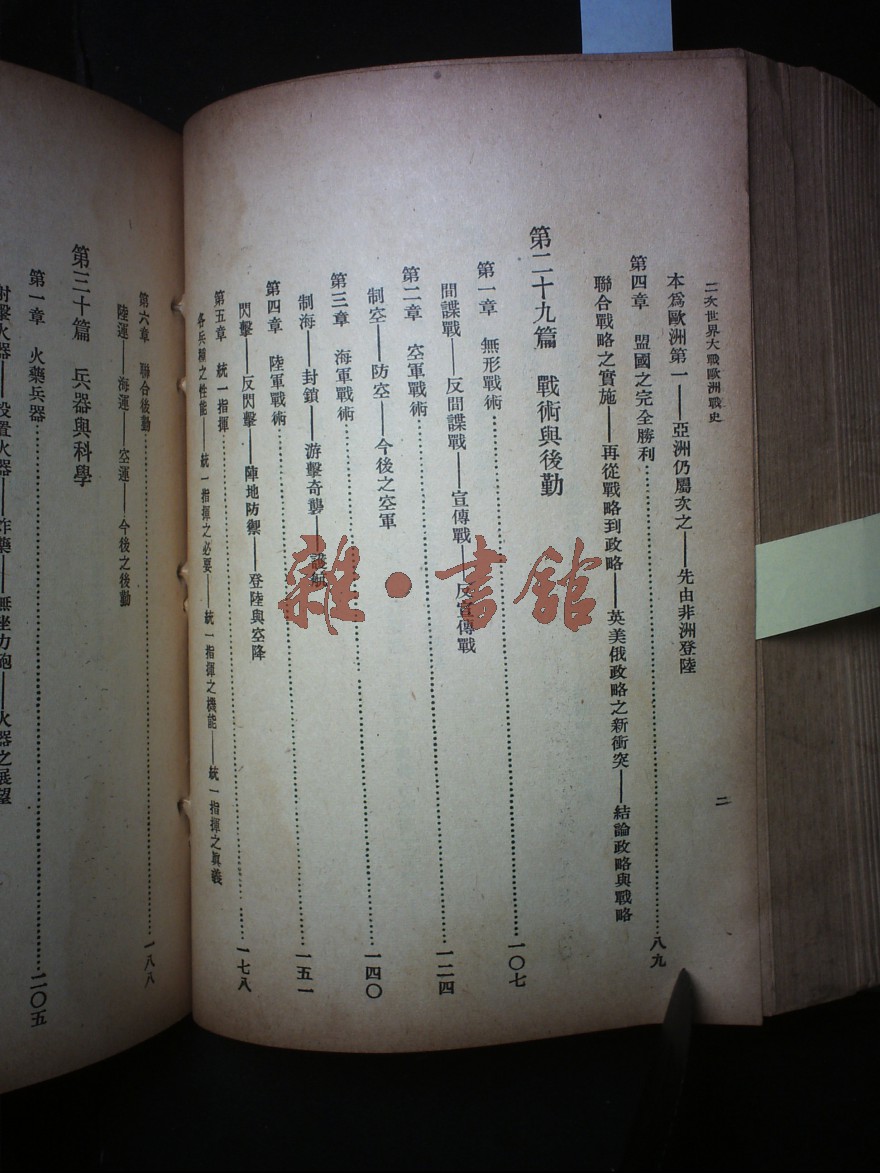 二次世界大戰歐洲戰史
二
本爲歐洲第一——亞洲仍屬次之——先由非洲登陸
第四章　盟國之完全勝利……………………八九
聯合戰略之實施——再從戰略到政略——英美俄政略之新衝突——結論政略與戰略
第二十九篇　戰術與後勤
第一章　無形戰術……………………一〇七
間諜戰——反間諜戰——宣傳戰——反宣傳戰
第二章　空軍戰術……………………一二四
制空——防空——今後之空軍
第三章　海軍戰術……………………一四〇
制海——封鎖——游擊奇襲——護航
第四章　陸軍戰術……………………一五一
閃擊——反閃擊——陣地防禦——登陸與空降
第五章　統一指揮……………………一七八
各兵種之性能——統一指揮之必要——統一指揮之機能——統一指揮之眞義
第六章　聯合後勤……………………一八八
陸運——海運——空運——今後之後勤
第三十篇　兵器與科學
第一章　火藥兵器……………………二〇五
射擊火器——設置火器——炸藥——無坐力砲——火器之展望
雜·書館